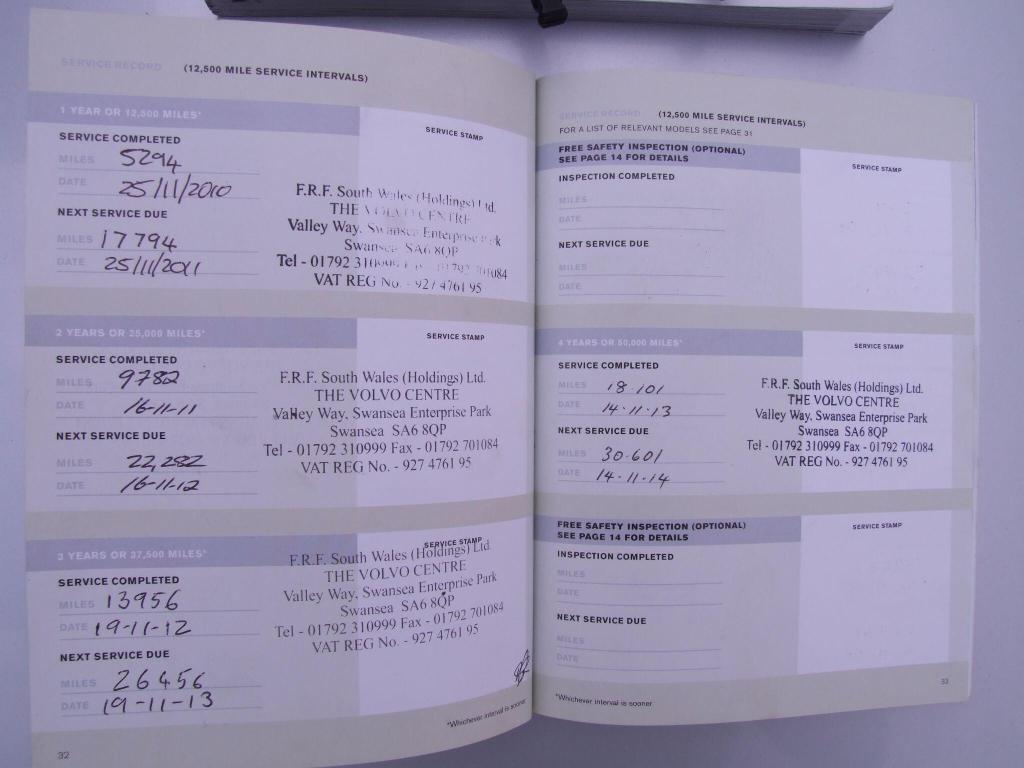 SERVICE RECORD (12,500 MILE SERVICE INTERVALS)
1 YEAR OR 12,500 MILES*
SERVICE STAMP
SERVICE COMPLETED
MILES 5294
DATE 25/11/2010
NEXT SERVICE DUE
MILES 17794
DATE 25/11/2011
F.R.F. South Wales (Holdings) Ltd.
THE VOLVO CENTRE
Valley Way, Swansea Enterprise Park
Swansea SA6 8QP
Tel - 01792 310999 Fax - 01792 701084
VAT REG No. - 927 4761 95
2 YEARS OR 25,000 MILES*
SERVICE STAMP
SERVICE COMPLETED
MILES 9782
DATE 16-11-11
NEXT SERVICE DUE
MILES 22,282
DATE 16-11-12
F.R.F. South Wales (Holdings) Ltd.
THE VOLVO CENTRE
Valley Way, Swansea Enterprise Park
Swansea SA6 8QP
Tel - 01792 310999 Fax - 01792 701084
VAT REG No. - 927 4761 95
3 YEARS OR 37,500 MILES*
SERVICE STAMP
SERVICE COMPLETED
MILES 13956
DATE 19-11-12
NEXT SERVICE DUE
MILES 26456
DATE 19-11-13
F.R.F. South Wales (Holdings) Ltd.
THE VOLVO CENTRE
Valley Way, Swansea Enterprise Park
Swansea SA6 8QP
Tel - 01792 310999 Fax - 01792 701084
VAT REG No. - 927 4761 95
*Whichever interval is sooner
32
SERVICE RECORD (12,500 MILE SERVICE INTERVALS)
FOR A LIST OF RELEVANT MODELS SEE PAGE 31
FREE SAFETY INSPECTION (OPTIONAL)
SEE PAGE 14 FOR DETAILS
SERVICE STAMP
INSPECTION COMPLETED
MILES
DATE
NEXT SERVICE DUE
MILES
DATE
4 YEARS OR 50,000 MILES*
SERVICE STAMP
SERVICE COMPLETED
MILES 18·101
DATE 14·11·13
NEXT SERVICE DUE
MILES 30·601
DATE 14·11·14
F.R.F. South Wales (Holdings) Ltd.
THE VOLVO CENTRE
Valley Way, Swansea Enterprise Park
Swansea SA6 8QP
Tel - 01792 310999 Fax - 01792 701084
VAT REG No. - 927 4761 95
FREE SAFETY INSPECTION (OPTIONAL)
SEE PAGE 14 FOR DETAILS
SERVICE STAMP
INSPECTION COMPLETED
MILES
DATE
NEXT SERVICE DUE
MILES
DATE
*Whichever interval is sooner
33